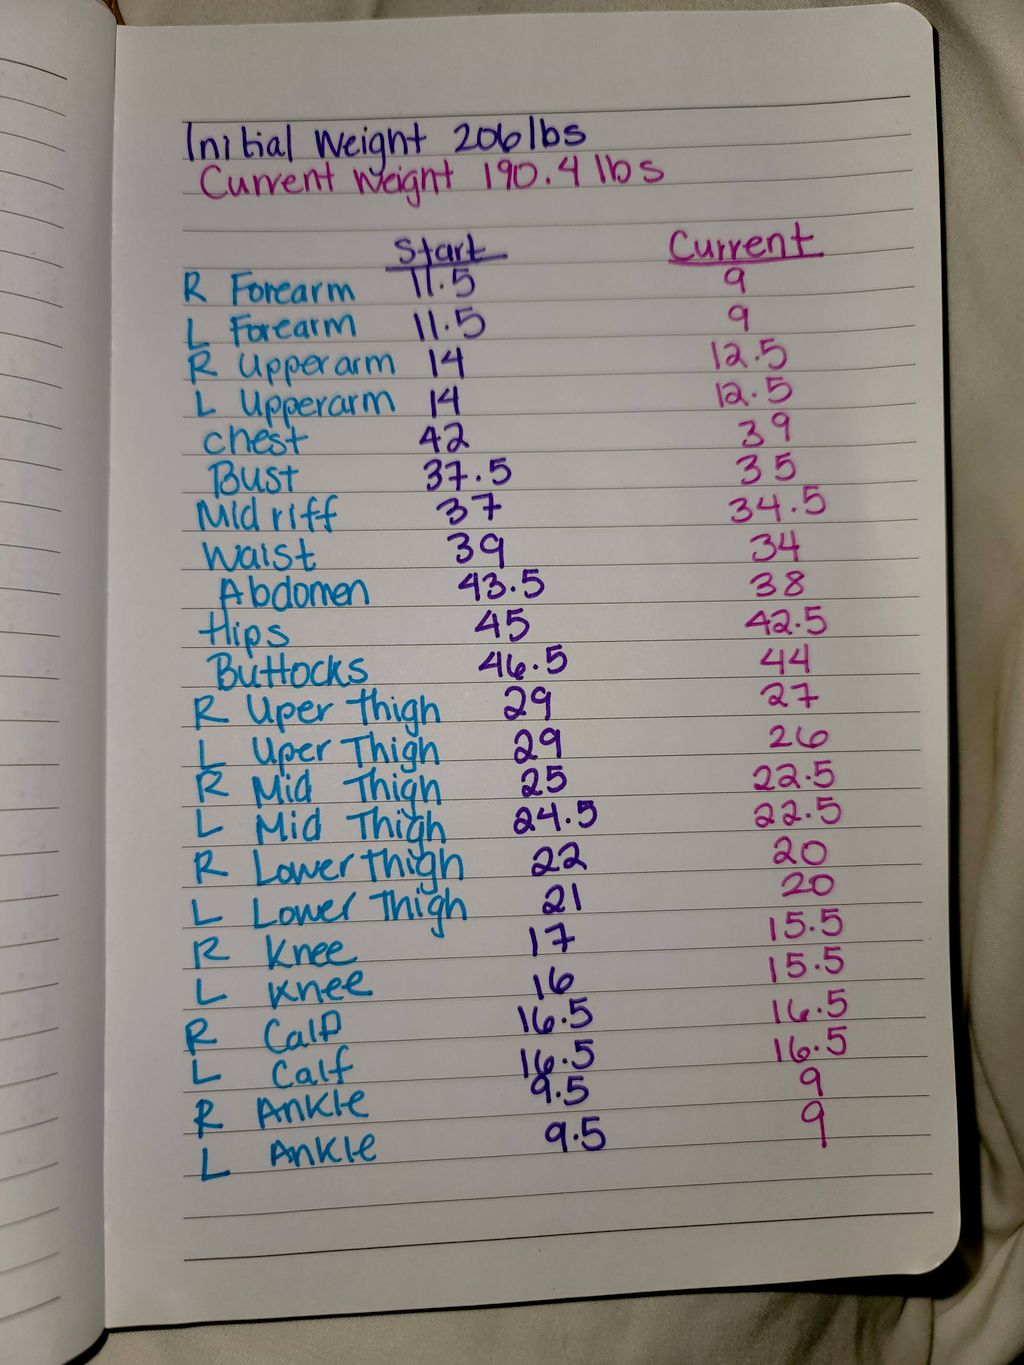 Initial Weight 206 lbs
Current Weight 190.4 lbs
Start Current
R Forearm 11.5 9
L Forearm 11.5 9
R Upperarm 14 12.5
L Upperarm 14 12.5
chest 42 39
Bust 37.5 35
Midriff 37 34.5
Waist 39 34
Abdomen 43.5 38
Hips 45 42.5
Buttocks 46.5 44
R Uper Thigh 29 27
L Uper Thigh 29 26
R Mid Thigh 25 22.5
L Mid Thigh 24.5 22.5
R Lower Thigh 22 20
L Lower Thigh 21 20
R Knee 17 15.5
L Knee 16 15.5
R Calf 16.5 16.5
L Calf 16.5 16.5
R Ankle 9.5 9
L Ankle 9.5 9